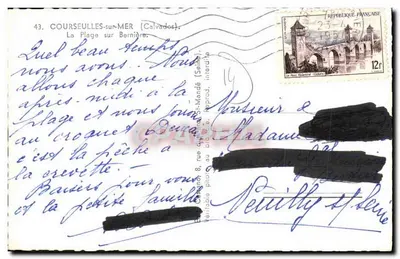 43. COURSEULLES-sur-MER (Calvados).
La Plage sur Bernière.
Quel beau temps
nous avons. Nous
allons chaque
après-midi à la
plage et nous jouons
au croquet. Demain
c'est la pêche à
la crevette.
Baisers pour vous
et la petite famille
14
REPUBLIQUE FRANÇAISE
12F
Monsieur &
Madame
Neuilly s/ Seine